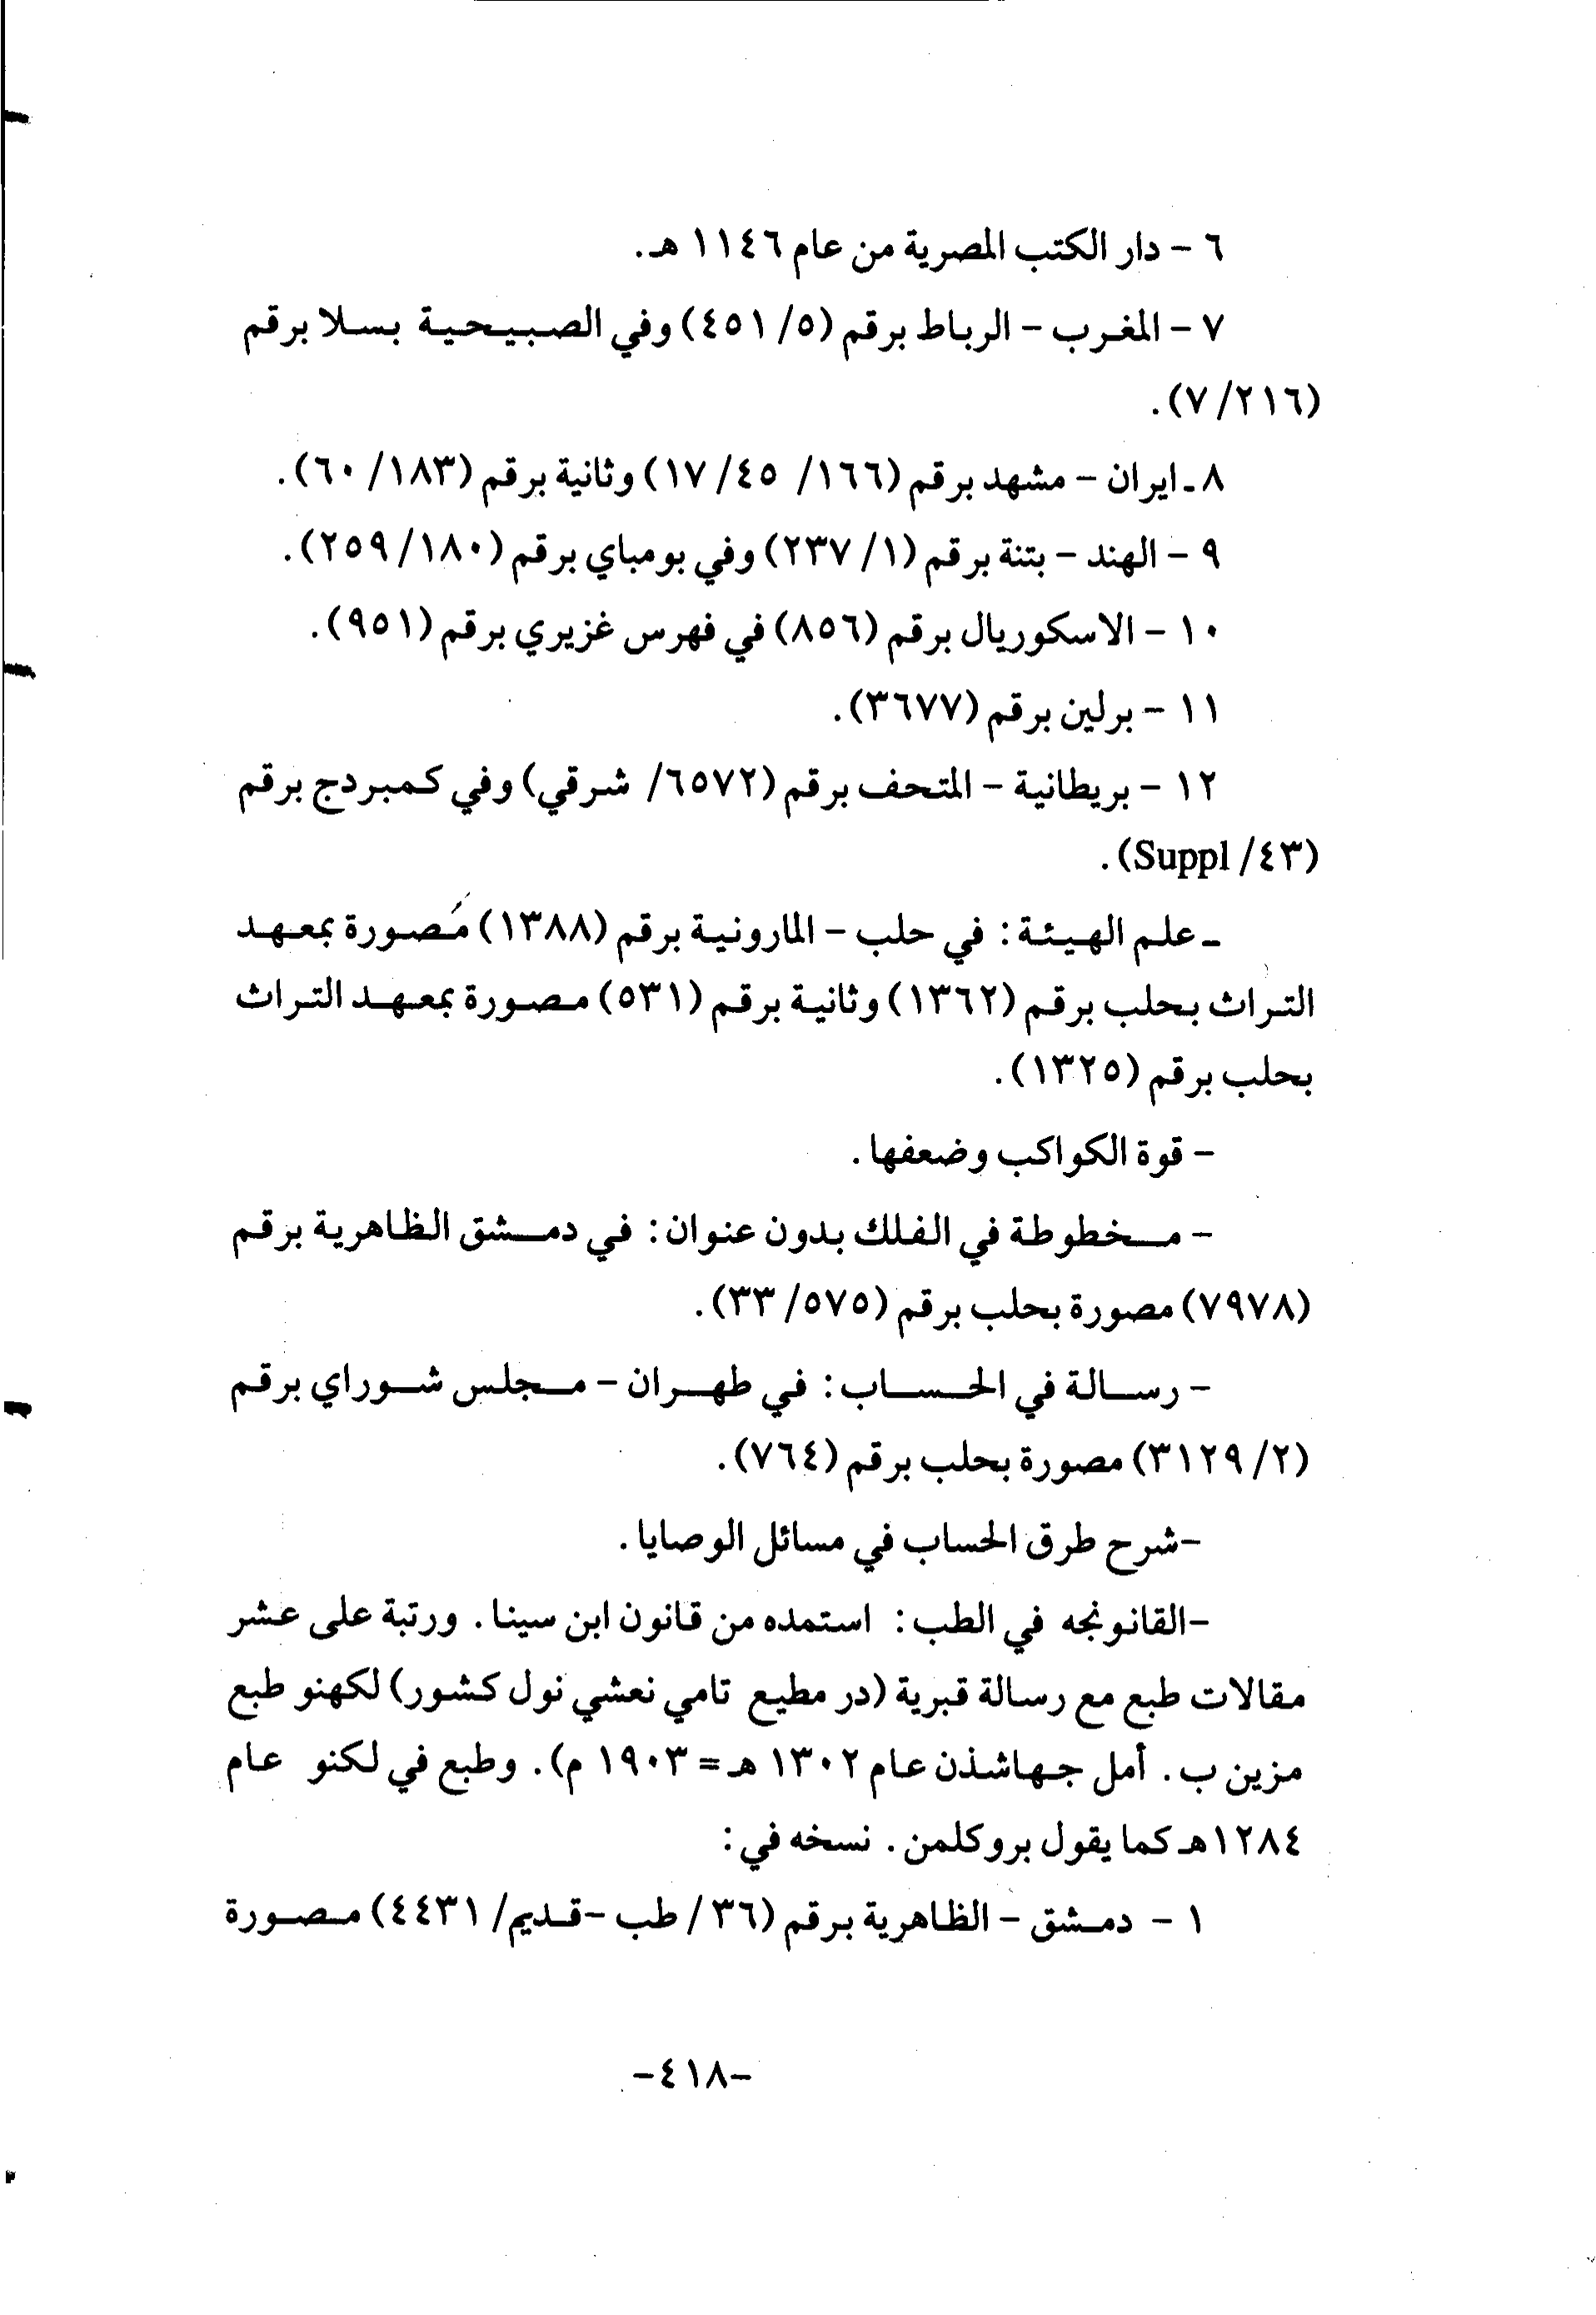 ٦ - دار الكتب المصرية من عام ١١٤٦ هـ.
٧ - المغرب - الرباط برقم (٤٥١/٥) وفي الصبيحية بسلا برقم
(٧/٢١٦).
٨ ـ ايران - مشهد برقم (١٦٦/ ١٧/٤٥) وثانية برقم (٦٠/١٨٣).
٩ - الهند - بتنة برقم (٢٣٧/١) وفي بومباي برقم (٢٥٩/١٨٠).
١٠ - الاسكوريال برقم (٨٥٦) في فهرس غزيري برقم (٩٥١).
١١ - برلين برقم (٣٦٧٧).
١٢ - بريطانية - المتحف برقم (٦٥٧٢/ شرقي) وفي كمبردج برقم
(Suppl /٤٣).
ـ علم الهيئة: في حلب - المارونية برقم (١٣٨٨) مُصورة بمعهد
التراث بحلب برقم (١٣٦٢) وثانية برقم (٥٣١) مصورة بمعهد التراث
بحلب برقم (١٣٢٥).
- قوة الكواكب وضعفها.
- مخطوطة في الفلك بدون عنوان: في دمشق الظاهرية برقم
(٧٩٧٨) مصورة بحلب برقم (٣٣/٥٧٥).
- رسالة في الحساب: في طهران - مجلس شوراي برقم
(٣١٢٩/٢) مصورة بحلب برقم (٧٦٤).
-شرح طرق الحساب في مسائل الوصايا.
-القانونجه في الطب: استمده من قانون ابن سينا. ورتبة على عشر
مقالات طبع مع رسالة قبرية (در مطيع تامي نعشي نول كشور) لكهنو طبع
مزين ب. أمل جهاشذن عام ١٣٠٢ هـ = ١٩٠٣ م). وطبع في لكنو عام
١٢٨٤هـ كما يقول بروكلمن. نسخه في:
١ - دمشق - الظاهرية برقم (٣٦/ طب -قديم/ ٤٤٣١) مصورة
-٤١٨-